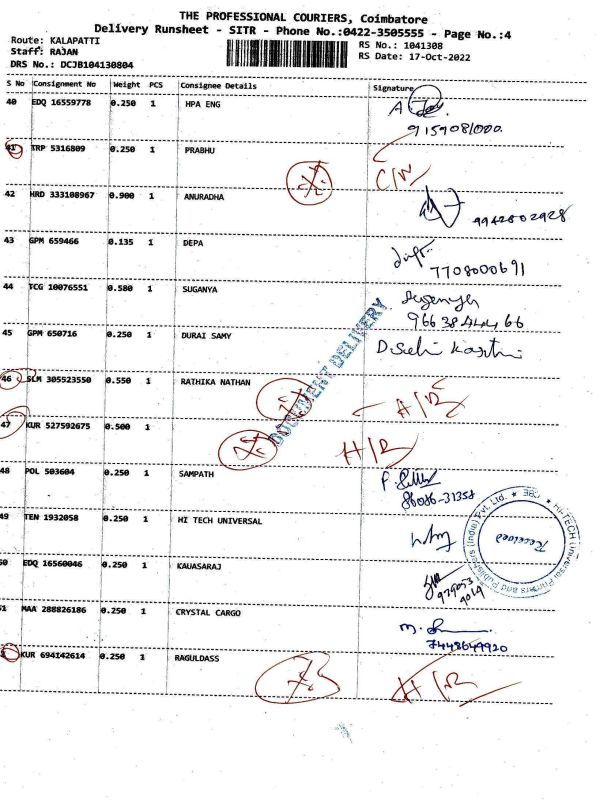 THE PROFESSIONAL COURIERS, Coimbatore
Delivery Runsheet - SITR - Phone No.:0422-3505555 - Page No.:4
Route: KALAPATTI
Staff: RAJAN
DRS No.: DCJB104130804
RS No.: 1041308
RS Date: 17-Oct-2022
S No Consignment No Weight PCS Consignee Details Signature
40 EDQ 16559778 0.250 1 HPA ENG
9159081000.
41 TRP 5316809 0.250 1 PRABHU
42 HRD 333108967 0.900 1 ANURADHA
9942802928
43 GPM 659466 0.135 1 DEPA
7708000691
44 TCG 10076551 0.580 1 SUGANYA Suganya
9663844466
45 GPM 650716 0.250 1 DURAI SAMY
DOCUMENT DELIVERY
46 SLM 305523550 0.550 1 RATHIKA NATHAN
47 KUR 527592675 0.500 1 H/R
48 POL 503604 0.250 1 SAMPATH
86086-31358
49 TEN 1932058 0.250 1 HI TECH UNIVERSAL
HI-TECH Universal Printers and Publishers (India) Pvt. Ltd. ★ CBE ★
Received
50 EDQ 16560046 0.250 1 KAUASARAJ
51 MAA 288826186 0.250 1 CRYSTAL CARGO
7448649920
KUR 694142614 0.250 1 RAGULDASS H/R